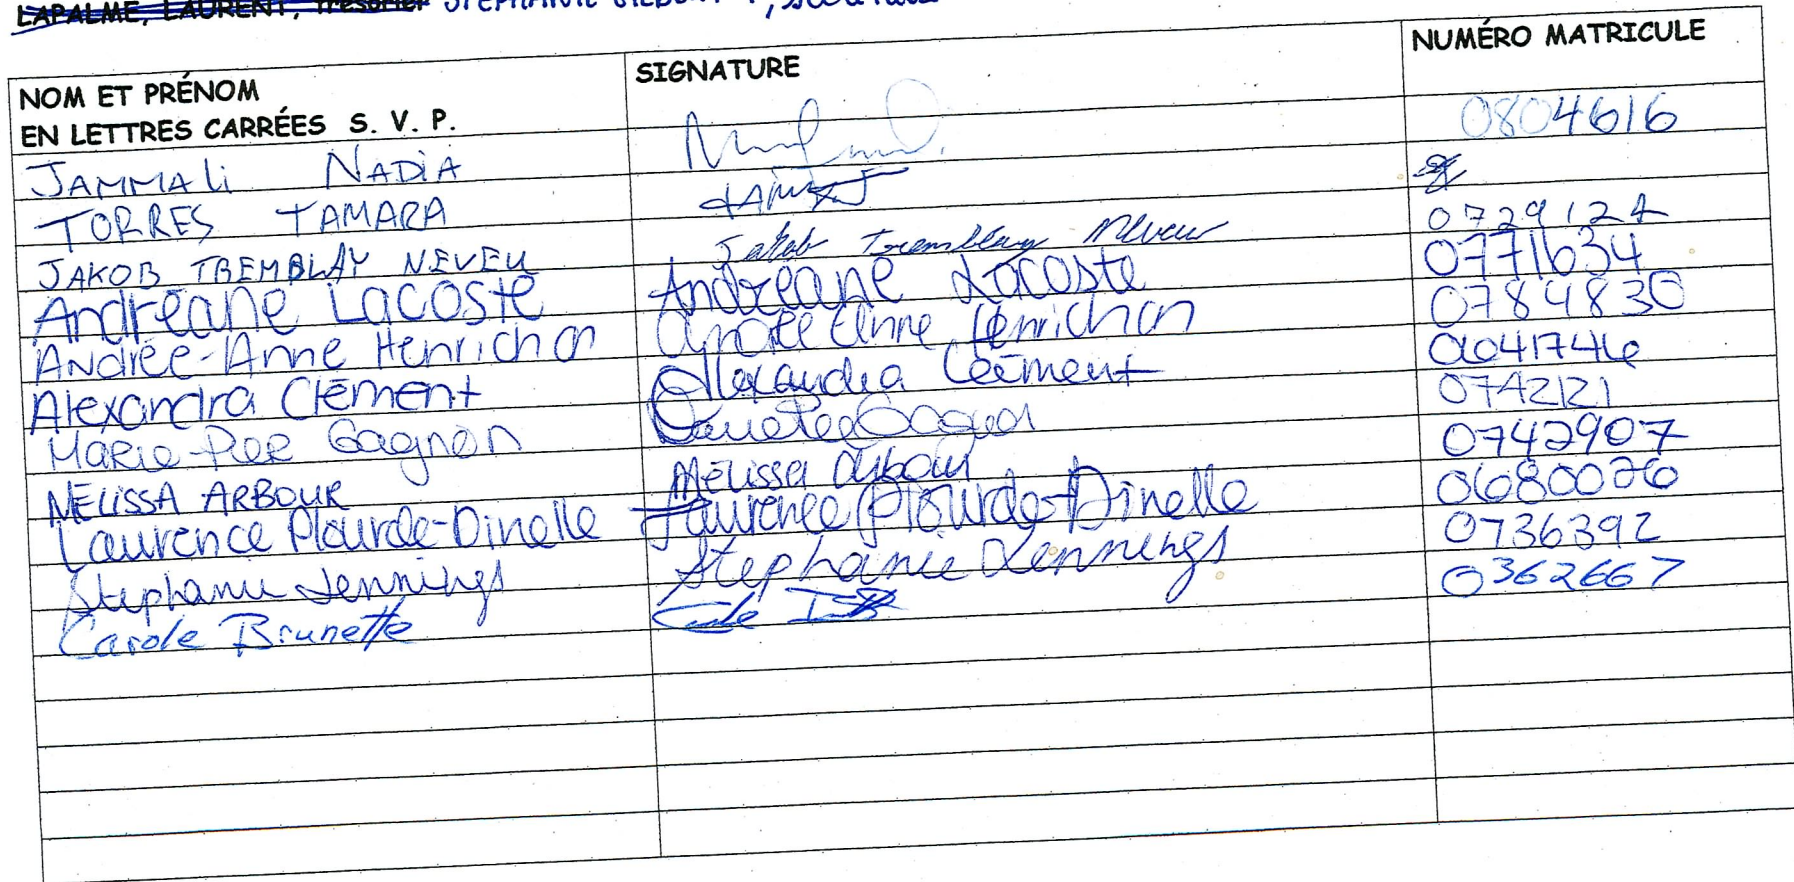 LAPALME, LAURENT, Trésorier STÉPHANIE
NOM ET PRÉNOM
EN LETTRES CARRÉES S. V. P. SIGNATURE NUMÉRO MATRICULE
JAMMALi NADiA 0804616
TORRES TAMARA
JAKOB TREMBLAY NEVEU Jakob Tremblay Neveu 0729124
Andréane Lacoste Andréane Lacoste 0771634
Andrée-Anne Henrichon Andrée Anne Henrichon 0784830
Alexandra Clément Alexandra Clément 0641746
Marie-Pier Gagnon 0742121
MÉLISSA ARBOUR Mélissa Arbour 0742907
Laurence Plourde-Dinelle Laurence Plourde-Dinelle 0680076
Stephanie Jennings Stephanie Jennings 0736392
Carole Brunette Carole 0362667